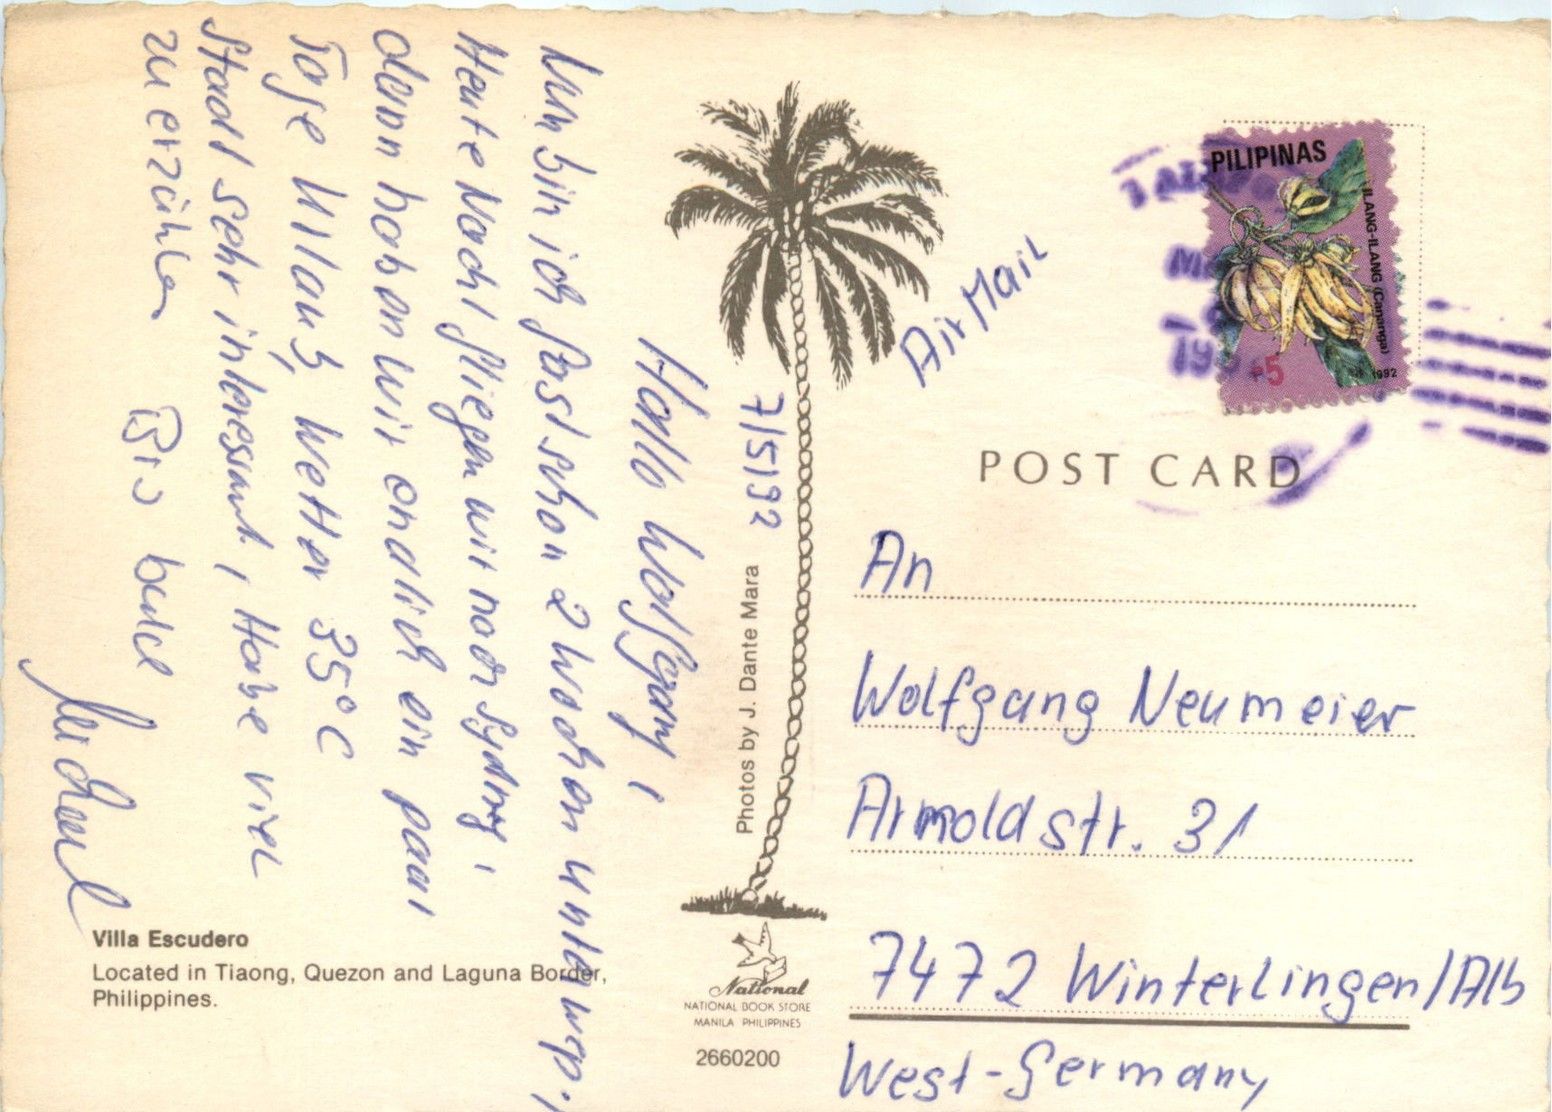 Hallo Wolfgang!
Nun bin ich fast schon 2 Wochen unterwegs.
Heute Nacht fliegen wir nach Sydney,
dann haben wir endlich ein paar
Tage Urlaub, Wetter 35°C
Stadt sehr interessant, Habe viel
zu erzählen Bis bald
Michael
7/5/92
Photos by J. Dante Mara
Air Mail
PILIPINAS
ILANG-ILANG (Cananga)
5
1992
POST CARD
An
Wolfgang Neumeier
Arnoldstr. 31
7472 Winterlingen/Alb
West-Germany
Villa Escudero
Located in Tiaong, Quezon and Laguna Border,
Philippines.
National
NATIONAL BOOK STORE
MANILA PHILIPPINES
2660200